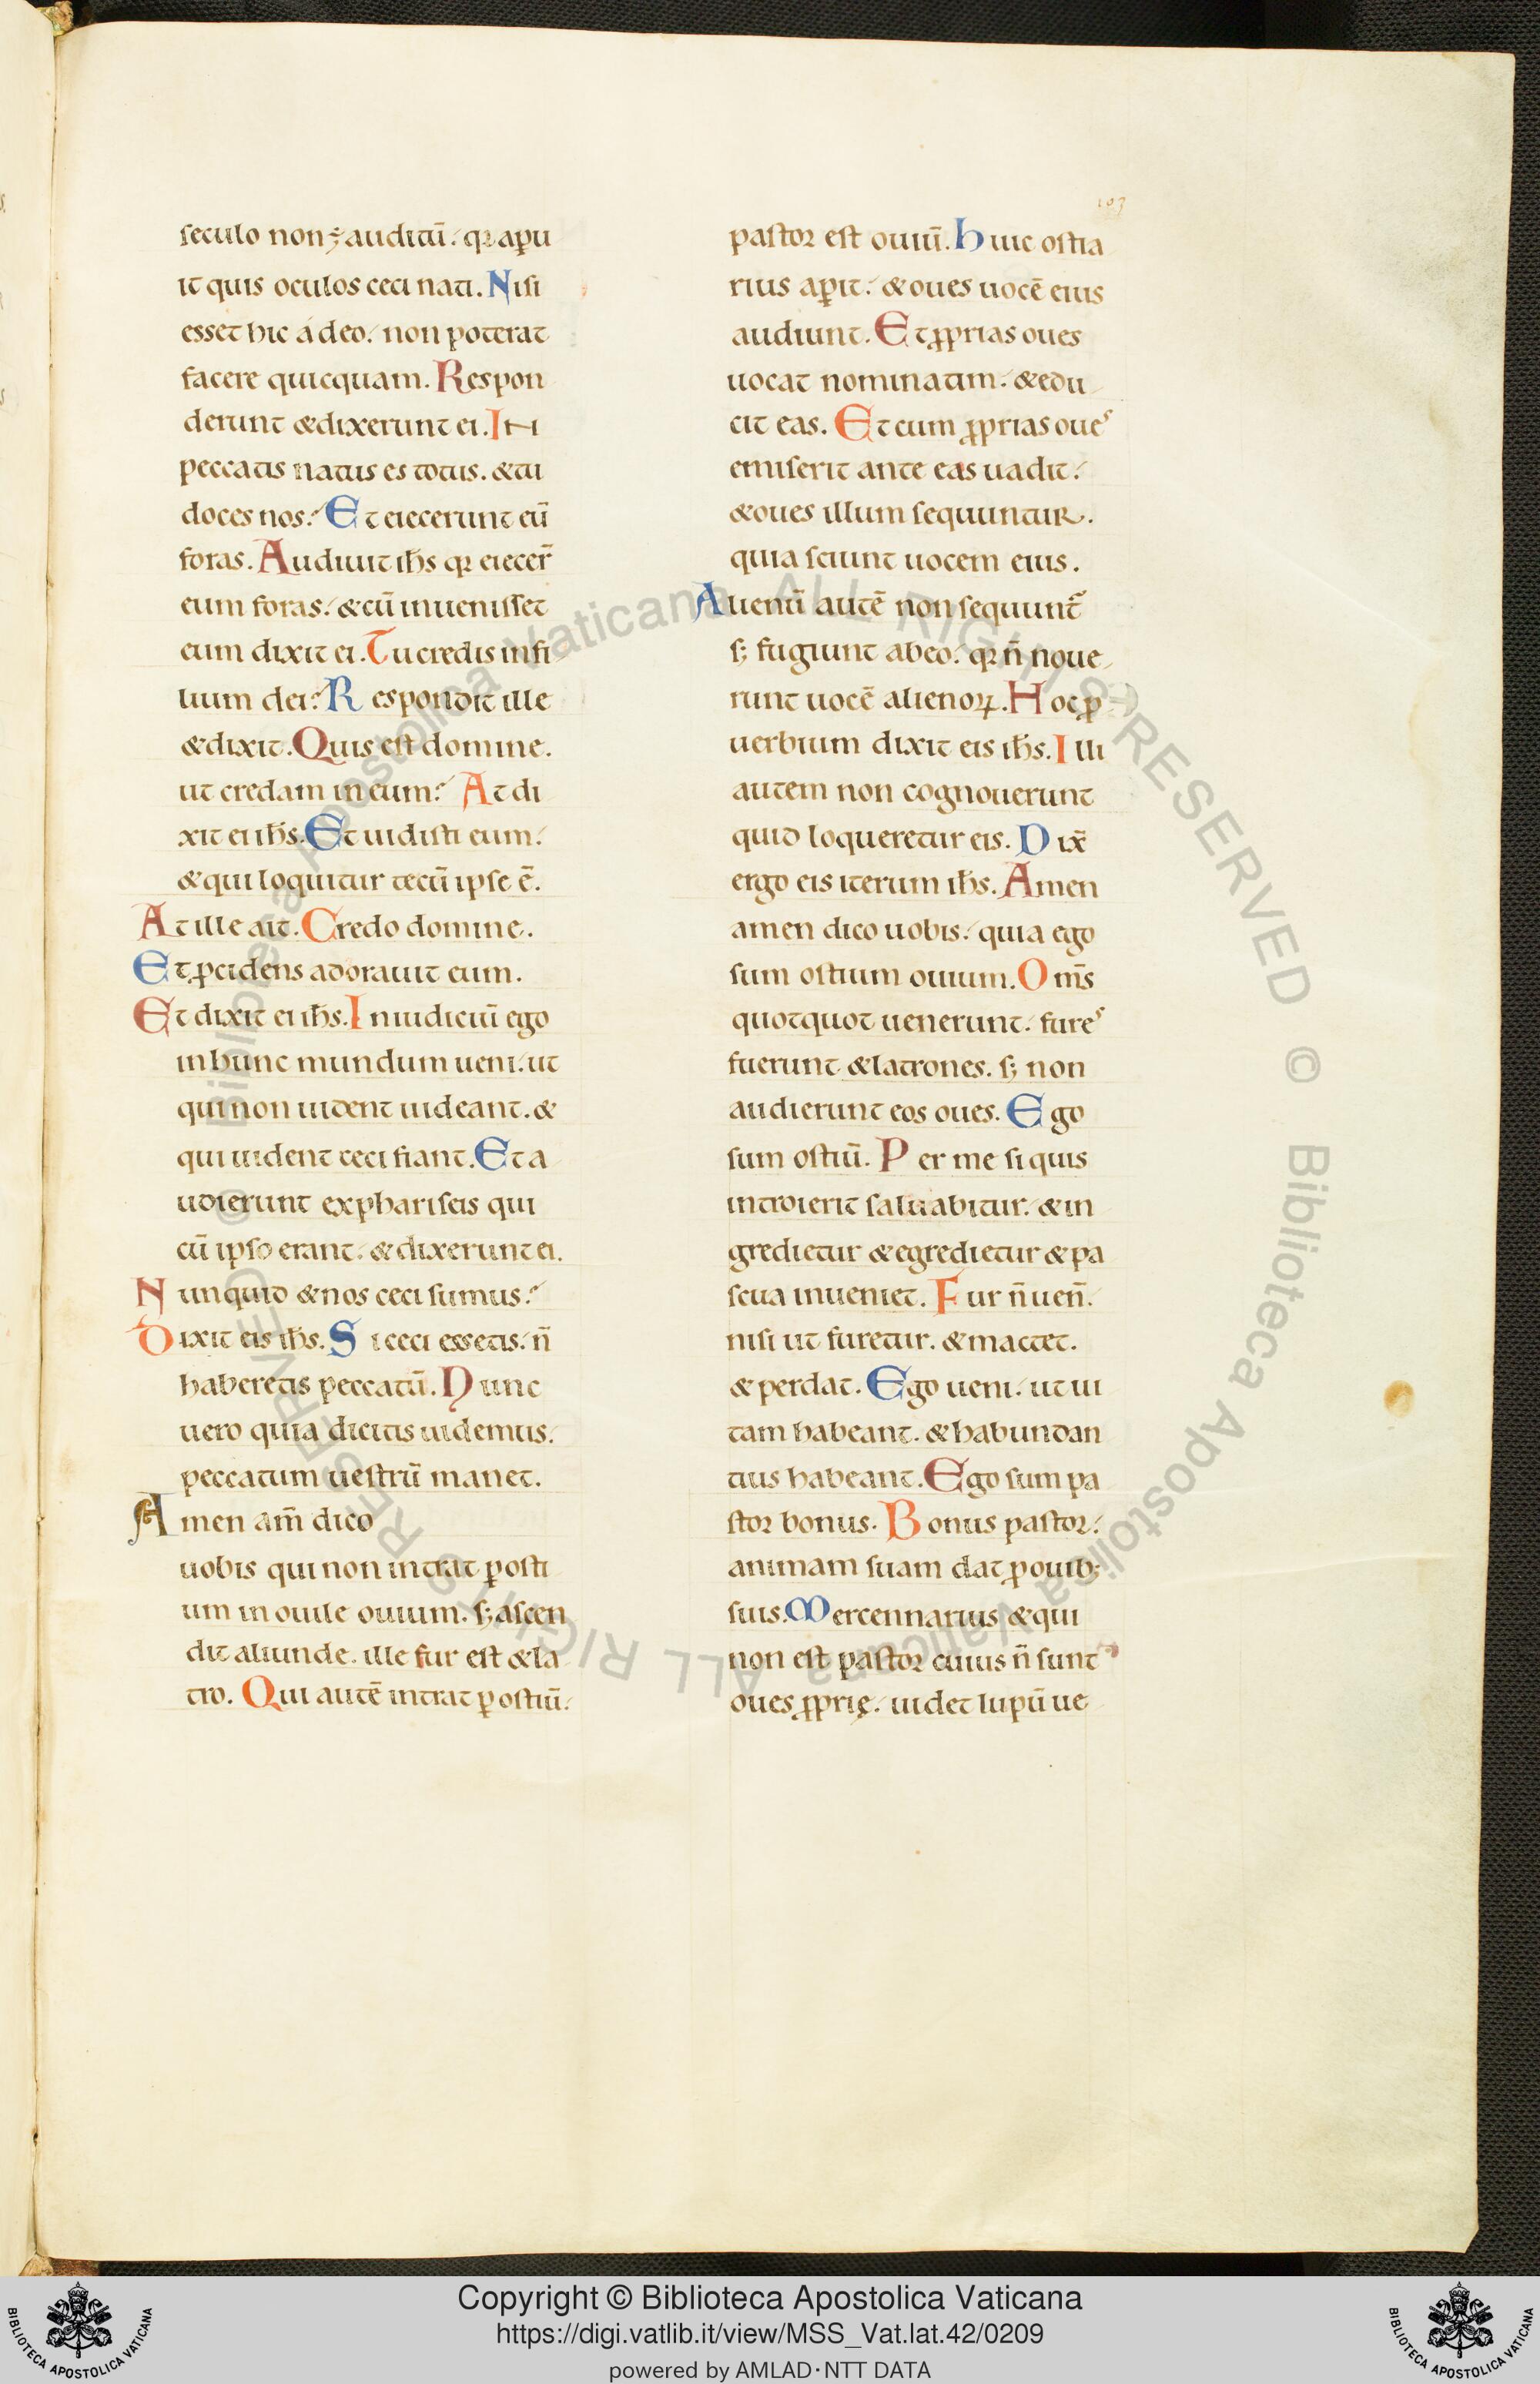 103
seculo non ÷ auditū. qꝛ aꝑu
it quis oculos ceci nati. Nisi
esset hic á deo. non poterat
facere quicquam. Respon
derunt &dixerunt ei. IN
peccatis natus es totus. &tu
doces nos? Et eiecerunt eū
foras. Audiuit ih̄s qꝛ eiecer̄
eum foras. &cū inuenisset
eum dixit ei. Tu credis in fi
lium dei? Respondit ille
&dixit. Quis est domine.
ut credam in eum? At di
xit ei ih̄s. Et uidisti eum.
&qui loquitur tecū ipse ē.
At ille ait. Credo domine.
Et ꝓcidens adorauit eum.
Et dixit ei ih̄s. In iudiciū ego
in hunc mundum ueni. ut
qui non uident uideant. &
qui uident ceci fiant. Et a
udierunt ex phariseis qui
cū ipso erant. &dixerunt ei.
Nunquid &nos ceci sumus?
Dixit eis ih̄s. Si ceci essetis. n̄
haberetis peccatū. Nunc
uero quia dicitis uidemus.
peccatum uestrū manet.
Amen am̄ dico
uobis qui non intrat ꝑ osti
um in ouile ouium. s; ascen
dit aliunde. ille fur est &la
tro. Qui autē intrat ꝑ ostiū.
pastor est ouiū. Huic ostia
rius aꝑit. &oues uocē eius
audiunt. Et ꝓprias oues
uocat nominatim. &edu
cit eas. Et cum ꝓprias oues
emiserit ante eas uadit.
&oues illum sequuntur.
quia sciunt uocem eius.
Alienū autē non sequunt᷑
s; fugiunt ab eo. qꝛ n̄ noue
runt uocē alienoꝝ. Hoc ꝓ
uerbium dixit eis ih̄s. Illi
autem non cognouerunt
quid loqueretur eis. Dix̄
ergo eis iterum ih̄s. Amen
amen dico uobis. quia ego
sum ostium ouium. Om̄s
quotquot uenerunt. fures
fuerunt &latrones. s; non
audierunt eos oues. Ego
sum ostiū. Per me si quis
introierit saluabitur. &in
gredietur &egredietur &pa
scua inueniet. Fur n̄ uen̄.
nisi ut furetur. &mactet.
&perdat. Ego ueni. ut ui
tam habeant. &habundan
tius habeant. Ego sum pa
stor bonus. Bonus pastor.
animam suam dat ꝓ ouib;
suis. Mercennarius &qui
non est pastor cuius n̄ sunt
oues ꝓprię. uidet lupū ue
© Biblioteca Apostolica Vaticana ALL RIGHTS RESERVED © Biblioteca Apostolica Vaticana ALL RIGHTS RESERVED
Copyright © Biblioteca Apostolica Vaticana
https://digi.vatlib.it/view/MSS_Vat.lat.42/0209
powered by AMLAD·NTT DATA
BIBLIOTECA APOSTOLICA VATICANA
BIBLIOTECA APOSTOLICA VATICANA